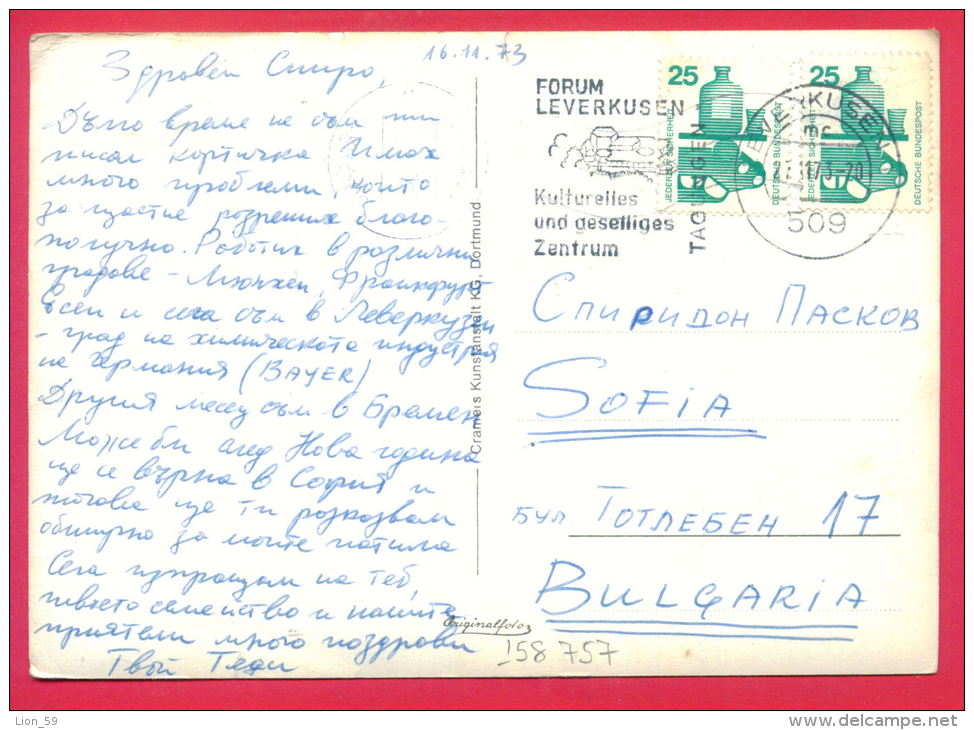 16.11.73
Здравей Спиро,
Дълго време не съм ти
писал картичка. Имах
много проблеми, които
за щастие разреших благо-
получно. Работих в различни
градове - Мюнхен, Франкфурт
Есен и сега съм в Леверкузен
- град на химическата индустрия
на Германия (BAYER)
Другия месец съм в Бремен
Може би след Нова година
ще се върна в София и
тогава ще ти разказвам
обширно за моите патила
Сега изпращам на теб,
твоето семейство и нашите
приятели много поздрави
Твой Теди
Cramers Kunstanstalt KG, Dortmund
Originalfoto
FORUM
LEVERKUSEN
Kulturelles
und geselliges
Zentrum
TAGUNGEN
LEVERKUSEN
mc
509
25
JEDERZEIT SICHERHEIT
DEUTSCHE BUNDESPOST
25
JEDERZEIT SICHERHEIT
DEUTSCHE BUNDESPOST
Спиридон Пасков
SOFIA
бул Тотлебен 17
BULGARIA
158757
Lion_59
delcampe.net